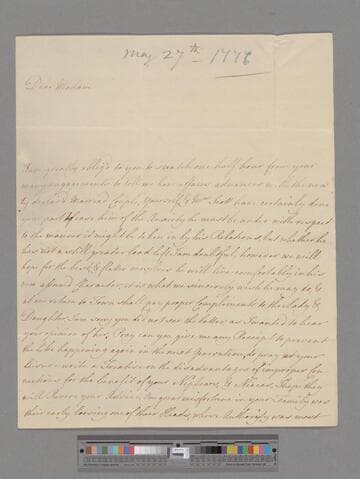 May 27th 1776
Dear Madam
I am greatly oblig'd to you to snatch one half hour from your
many engagements to tell me how affairs advances with the new
ly declar'd Married Couple, Yourself & Mrs Scott have certainly done
your part to ease him of the Anxiety he must be under with respect
to the manner it might be taken in by his Relations, but whether he
has not a still greater load left I am doubtfull, however we will
hope for the best, & flatter ourselves he will live comfortable in his
own assumed Character, it is what we sincerely wish he may do, &
at our return to Town shall pay proper Compliments to the Lady &
Daughter. I am sorry you did not see the latter, as I wanted to hear
your opinion of her, Pray can you give me any Receipt to prevent
the like happening again in the next generation, do pray at your
leisure write a Treatise on the disadvantages of improper Con
nections for the benefit of your Nephews & Nieces, I hope they
will Revere your Advice. One great misfortune in your Family was
their early loosing one of their Heads, whose Authority was most